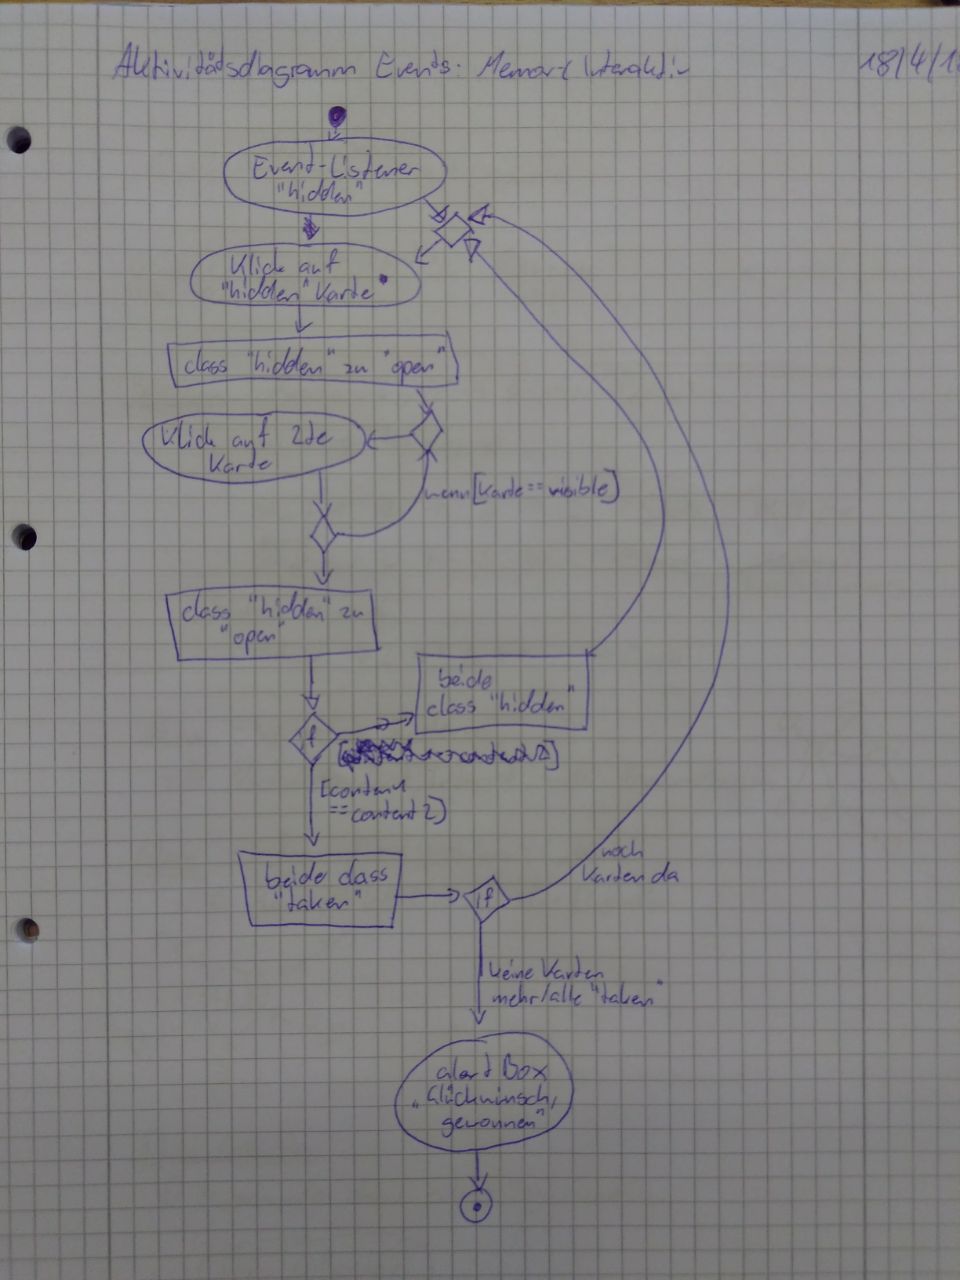 Aktivitätsdiagramm Events: Memory Interaktiv 18/4/1
Event-Listener
"hidden"
Klick auf
"hidden" Karte
class "hidden" zu "open"
Klick auf 2te
Karte
wenn [Karte == visible]
class "hidden" zu
"open"
beide
class "hidden"
if
[content1
== content2]
beide class
"taken"
if
noch
Karten da
keine Karten
mehr/alle "taken"
alert Box
"Glückwunsch,
gewonnen"